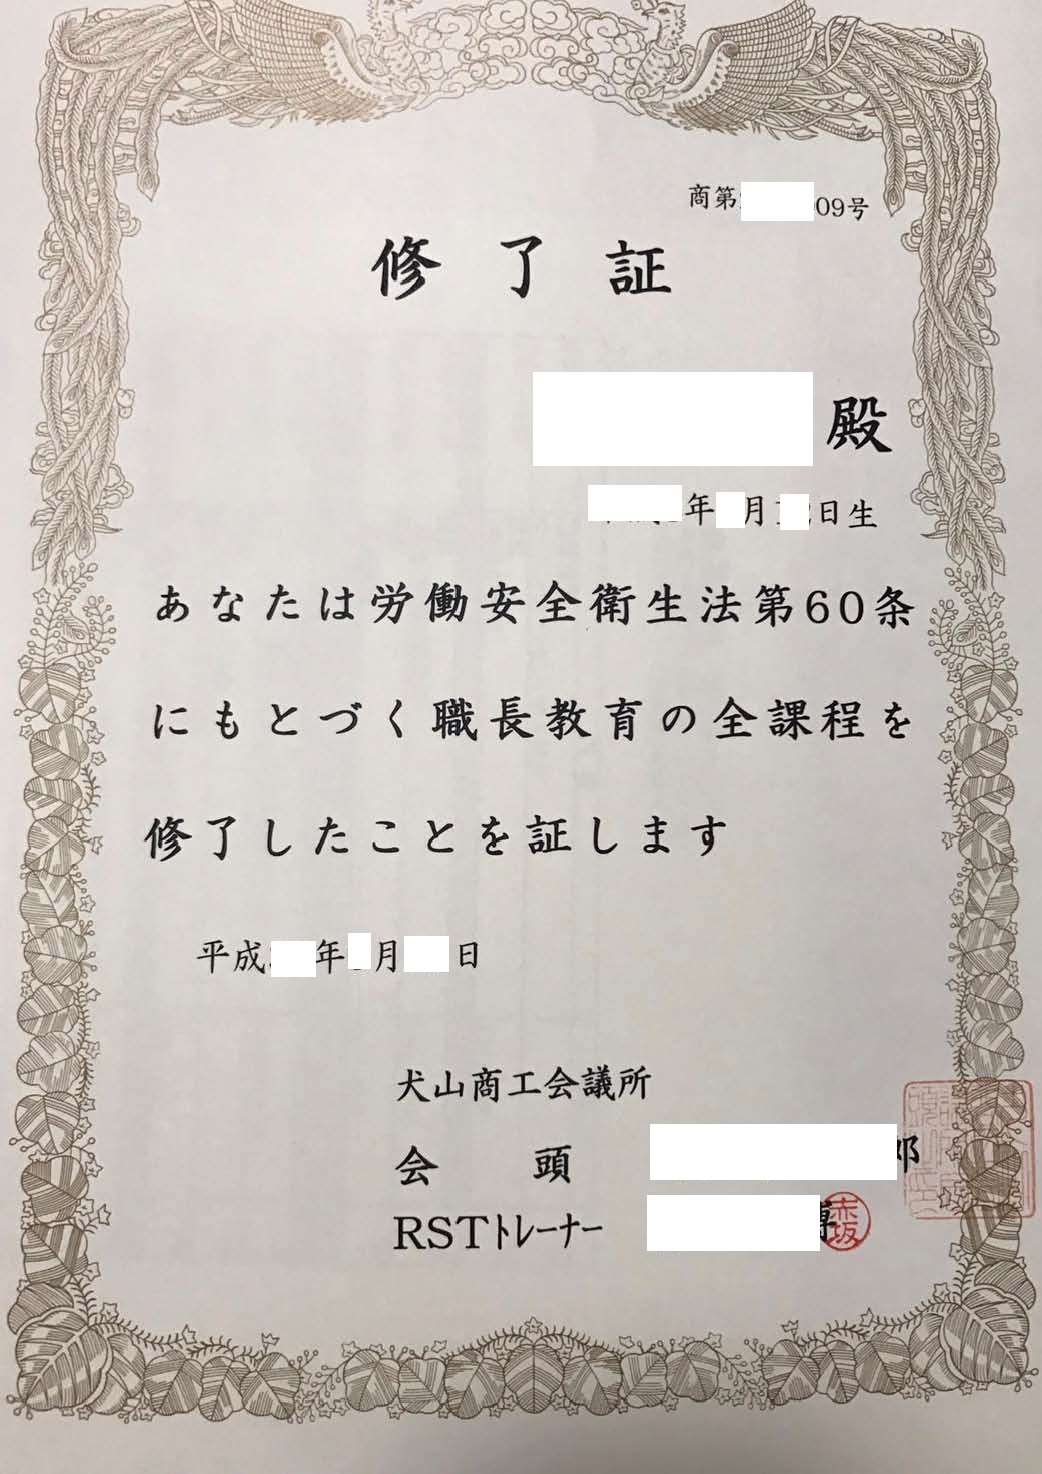 商第 09号
修了証
殿
年 月 日生
あなたは労働安全衛生法第60条
にもとづく職長教育の全課程を
修了したことを証します
平成 年 月 日
犬山商工会議所
会頭 郎
RSTトレーナー
赤坂